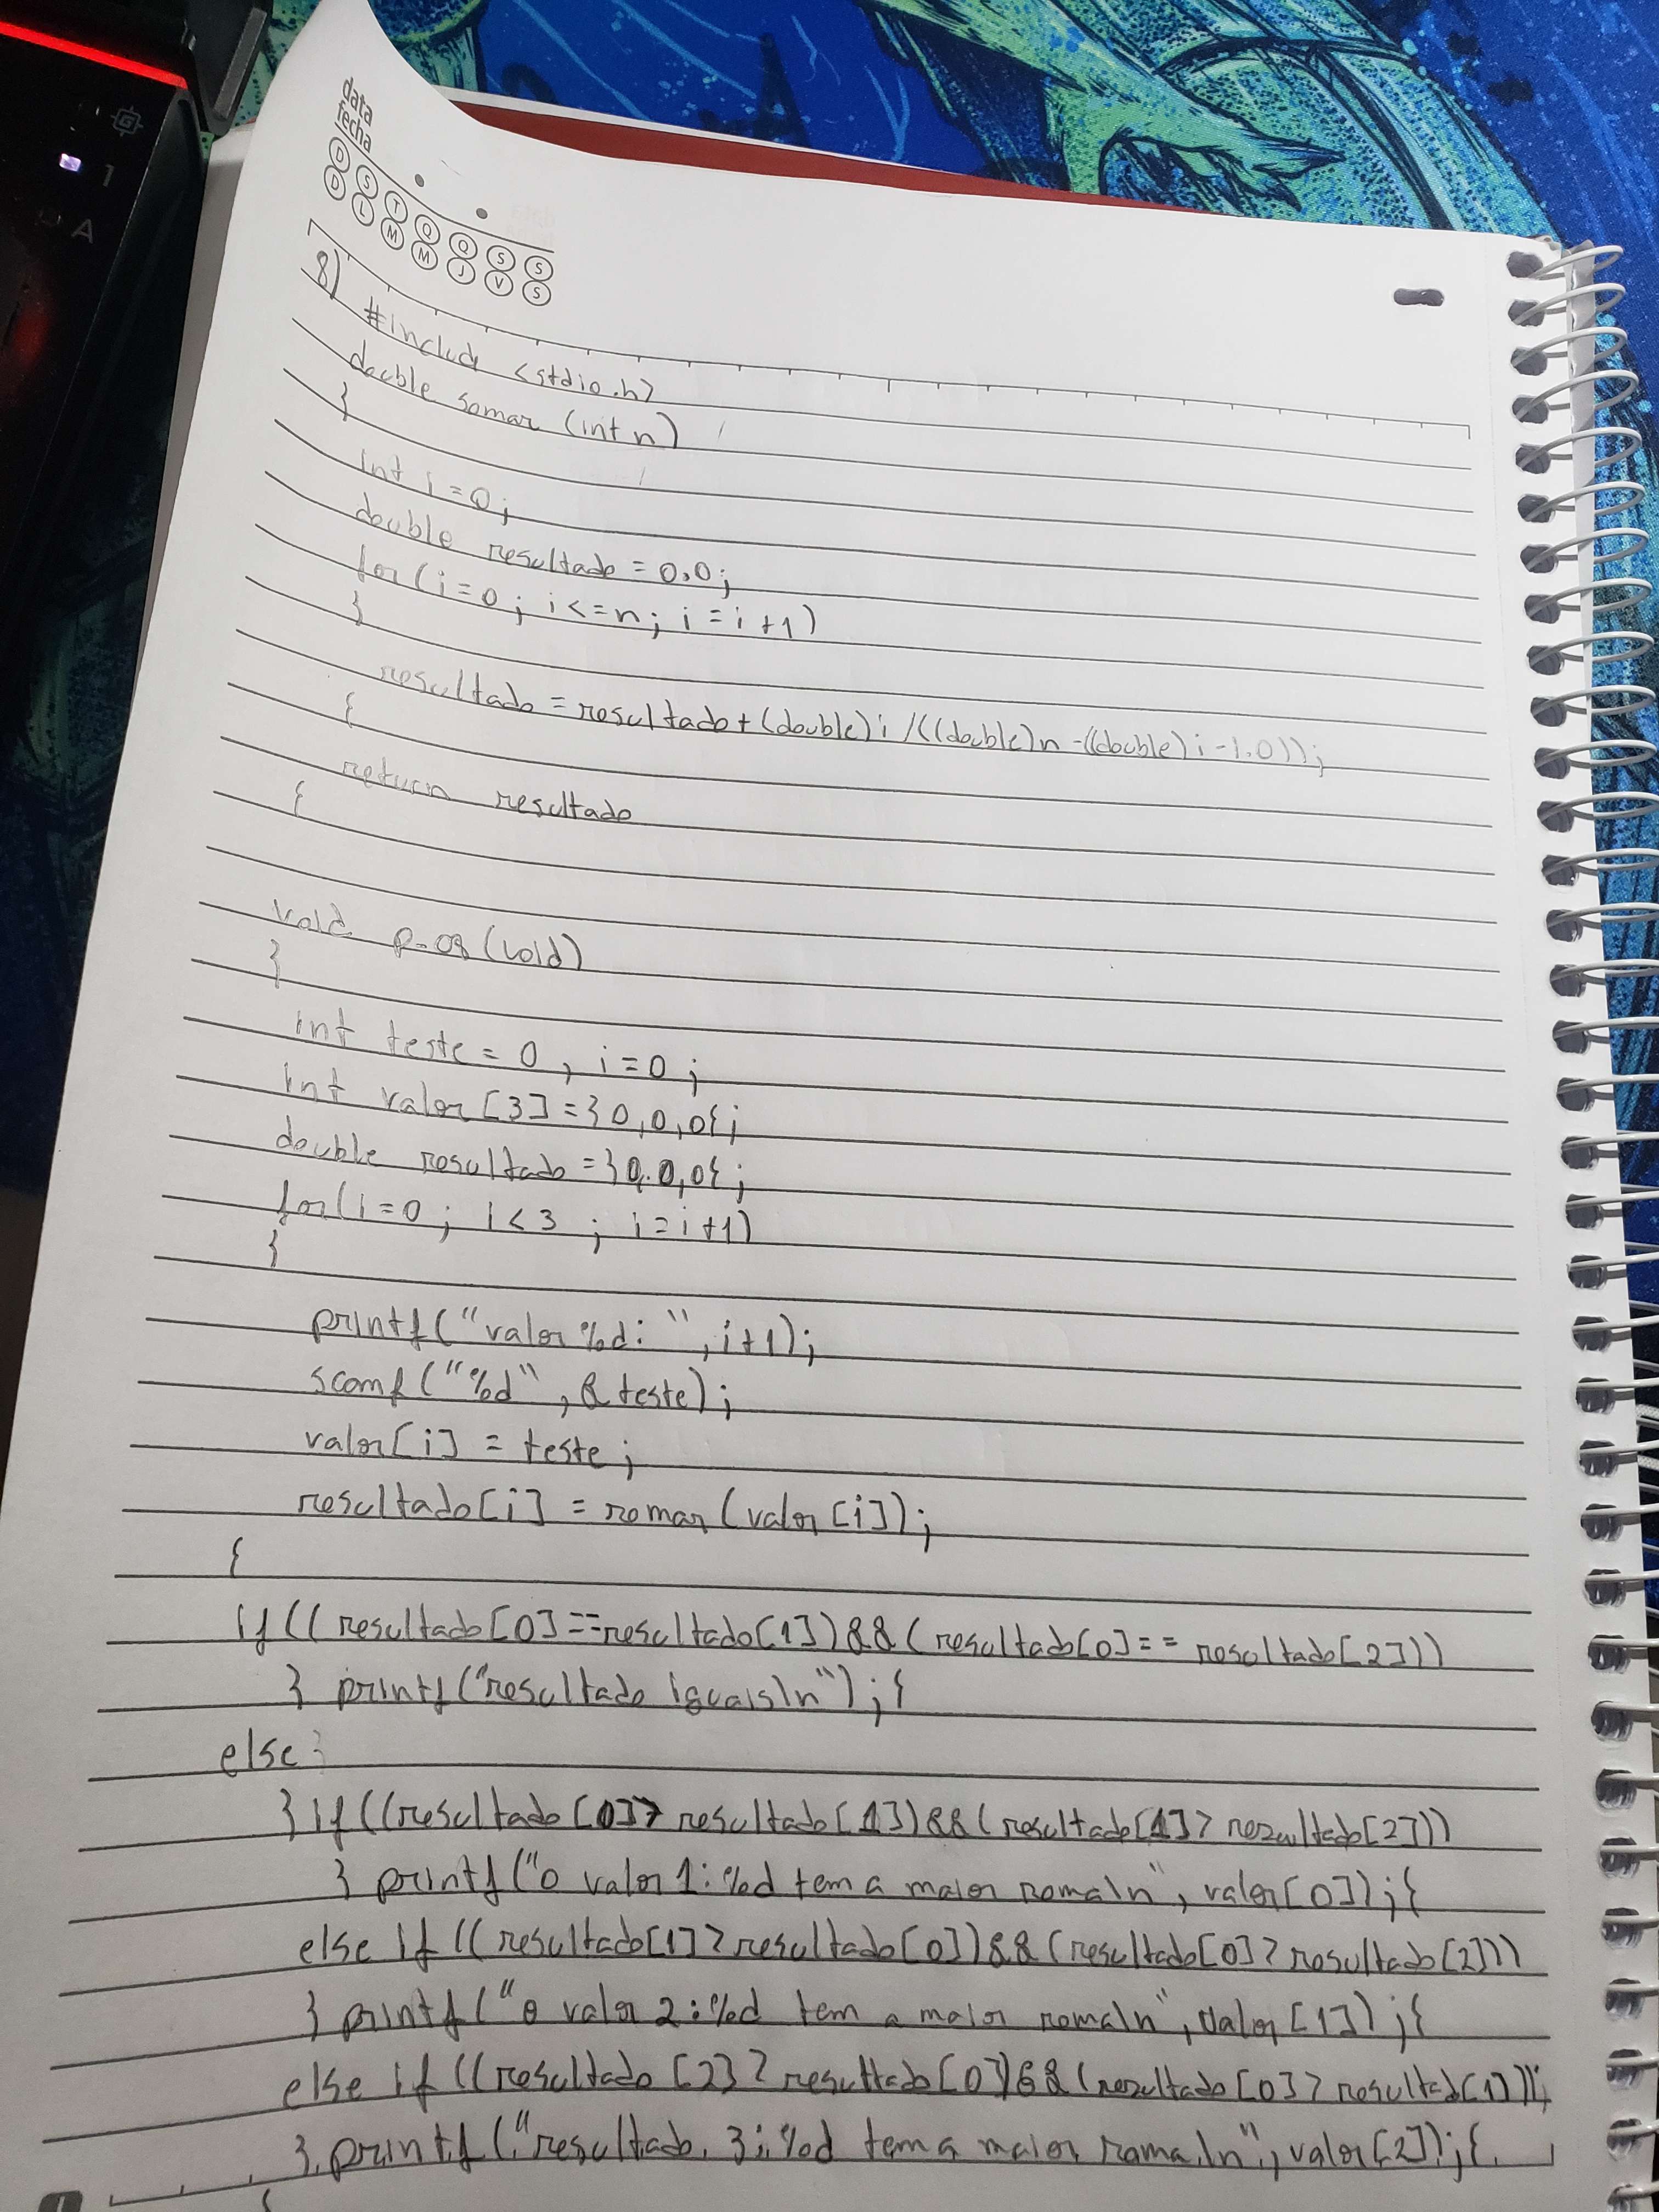 1
A
data
fecha
D S T Q Q S S
D L M M J V S
8) #includ <stdio.h>
double somar (int n)
}
int i = 0;
double resultado = 0,0;
for (i = 0; i <= n; i = i + 1)
}
resultado = resultado + (double) i / ((double) n - ((double) i - 1.0));
{
return resultado
{
void p-08 (void)
}
int teste = 0, i = 0;
int valor [3] = } 0, 0, 0{;
double resultado = } 0.0,0{;
for (i = 0; i < 3; i = i + 1)
}
printf ("valor %d: ", i + 1);
scamf ("%d", & teste);
valor [i] = teste;
resultado [i] = romar (valor [i]);
{
if (( resultado [0] == resultado [1]) && ( resultado [0] == resultado [2]))
} printf ("resultado iguais\n"); {
else
} if ((resultado [0] > resultado [1]) && (resultado [1] > rezultado [2]))
} printf ("o valor 1: %d tem a maior roma\n", valor [0]); {
else if (( resultado [1] > resultado [0]) && (resultado [0] > resultado [2]))
} printf ("o valor 2: %d tem a maior roma\n", valor [1]); {
else if ((resultado [2] > resultado [0]) && (rezultado [0] > resultad [1]));
} printf ("resultado 3: %d tem a maior roma\n", valor [2]); {
{